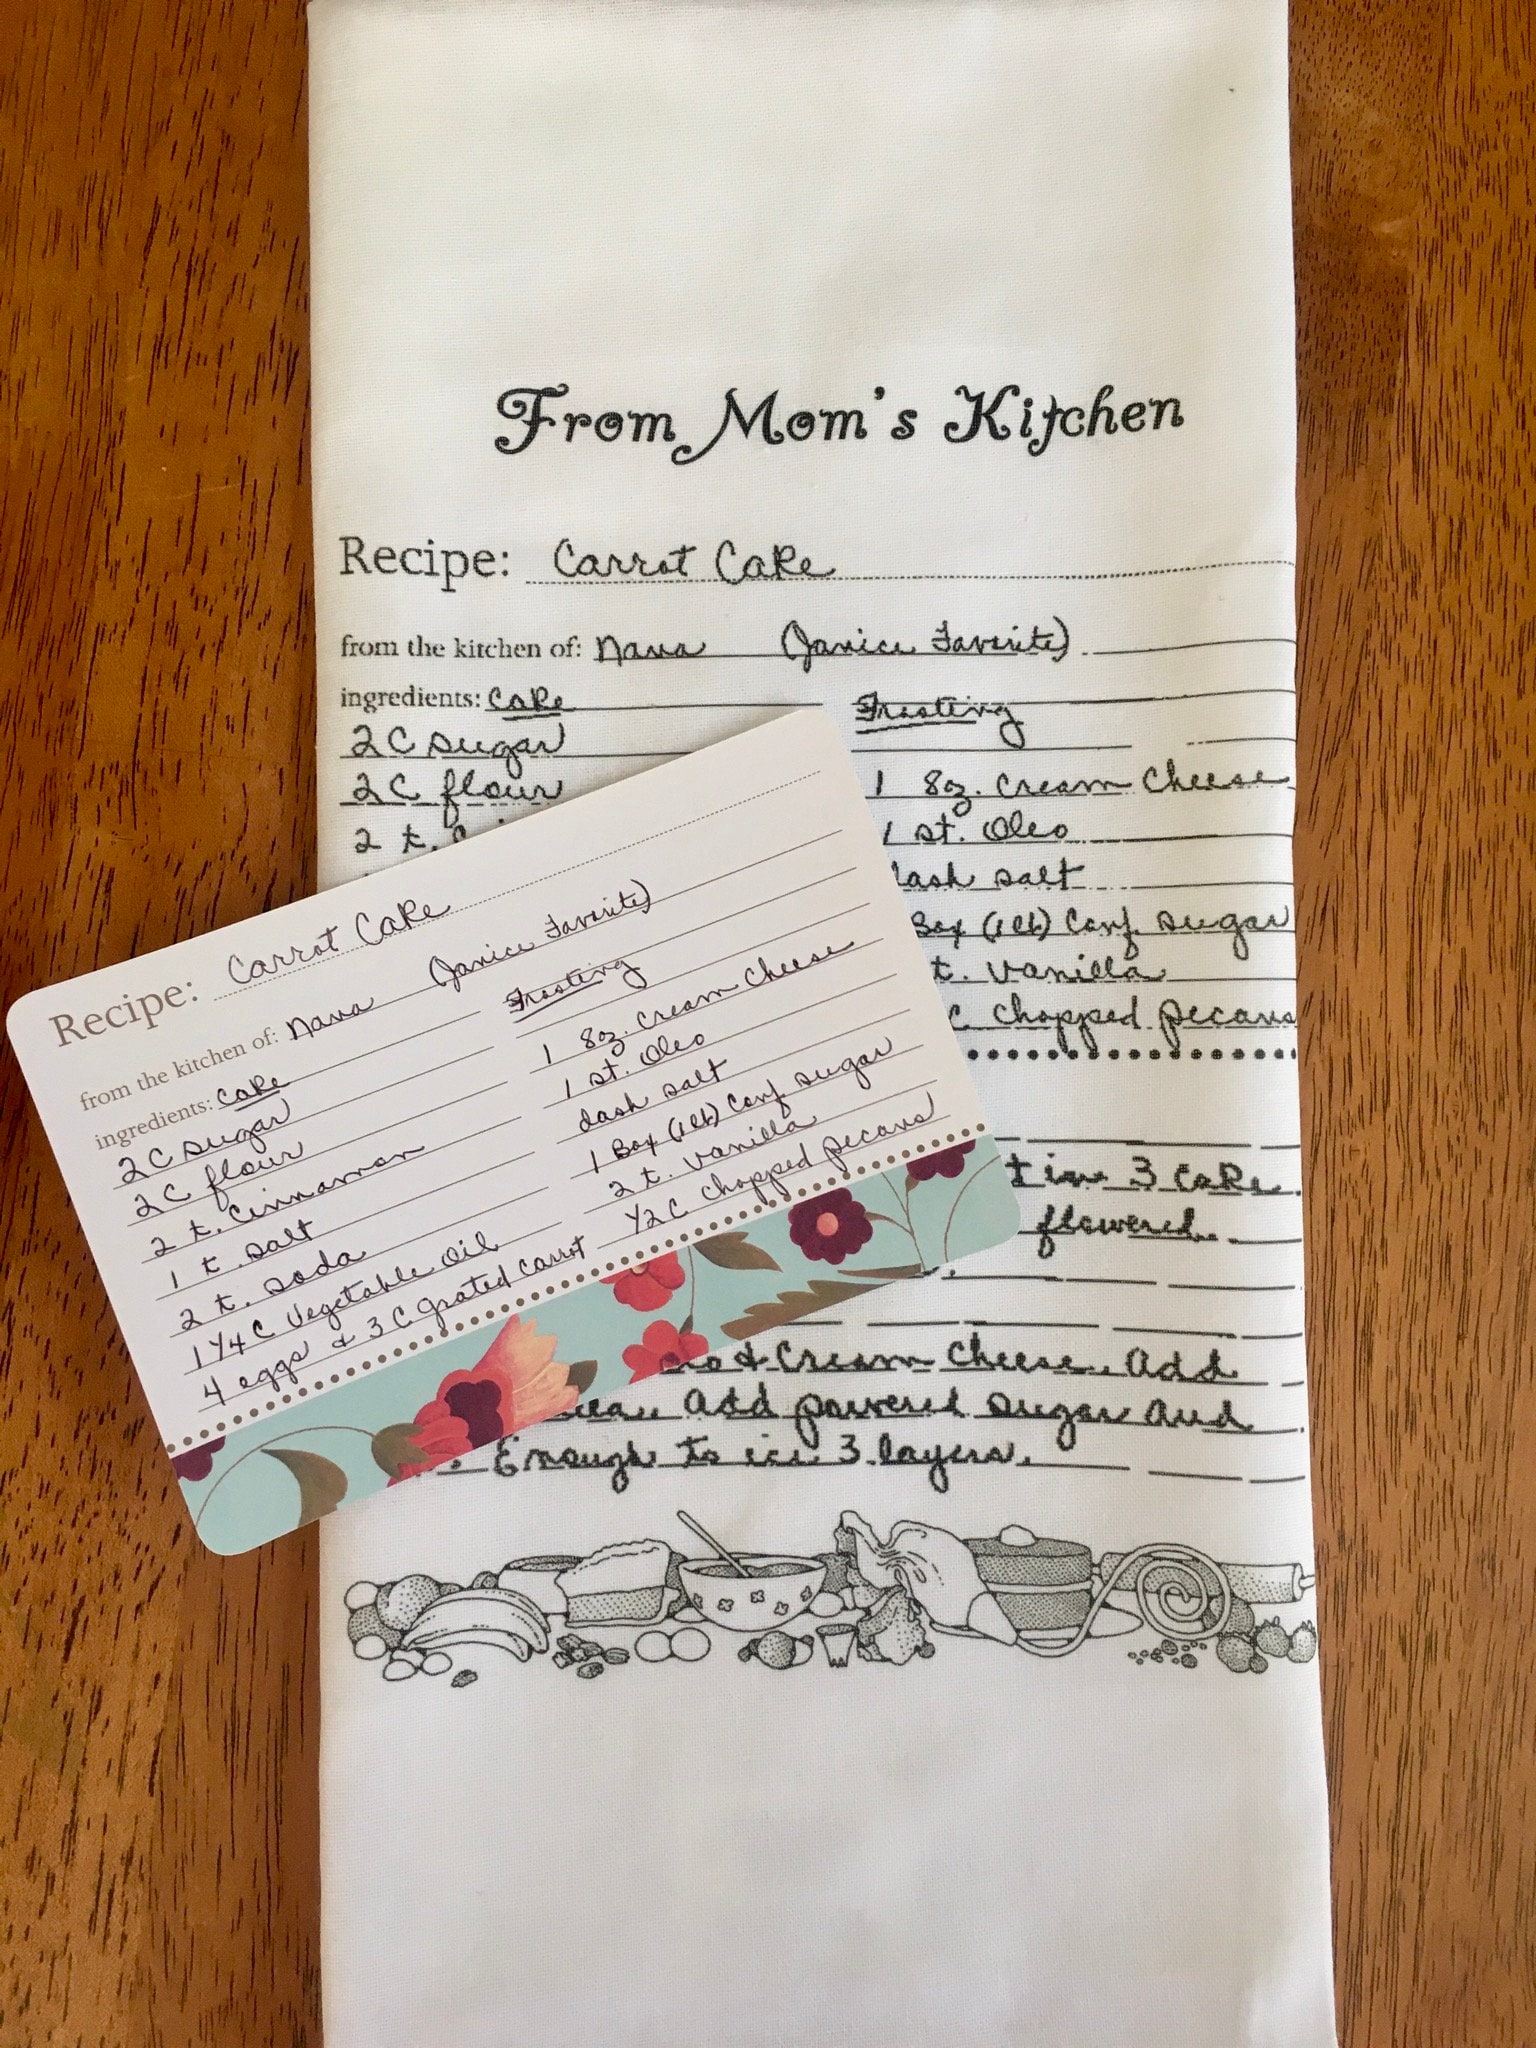 From Mom's Kitchen
Recipe: Carrot Cake
from the kitchen of: Nana (Janice Favorite)
ingredients: Cake
2 C sugar
2 C flour
2 t.
Frosting
1 8oz. Cream Cheese
1 st. Oleo
dash salt
Box (1 lb) Conf. sugar
t. vanilla
C chopped pecans
in 3 Cake
flowered.
& Cream Cheese. Add
Add powered sugar and
Enough to ice 3 layers.
Recipe: Carrot Cake
from the kitchen of: Nana (Janice Favorite)
ingredients: Cake
2 C sugar
2 C flour
2 t. Cinnamon
1 t. salt
2 t. soda
1 1/4 C Vegetable Oil
4 eggs & 3 C grated Carrot
Frosting
1 8oz. Cream Cheese
1 st. Oleo
dash salt
1 Box (1 lb) Conf. sugar
2 t. vanilla
1/2 C chopped pecans